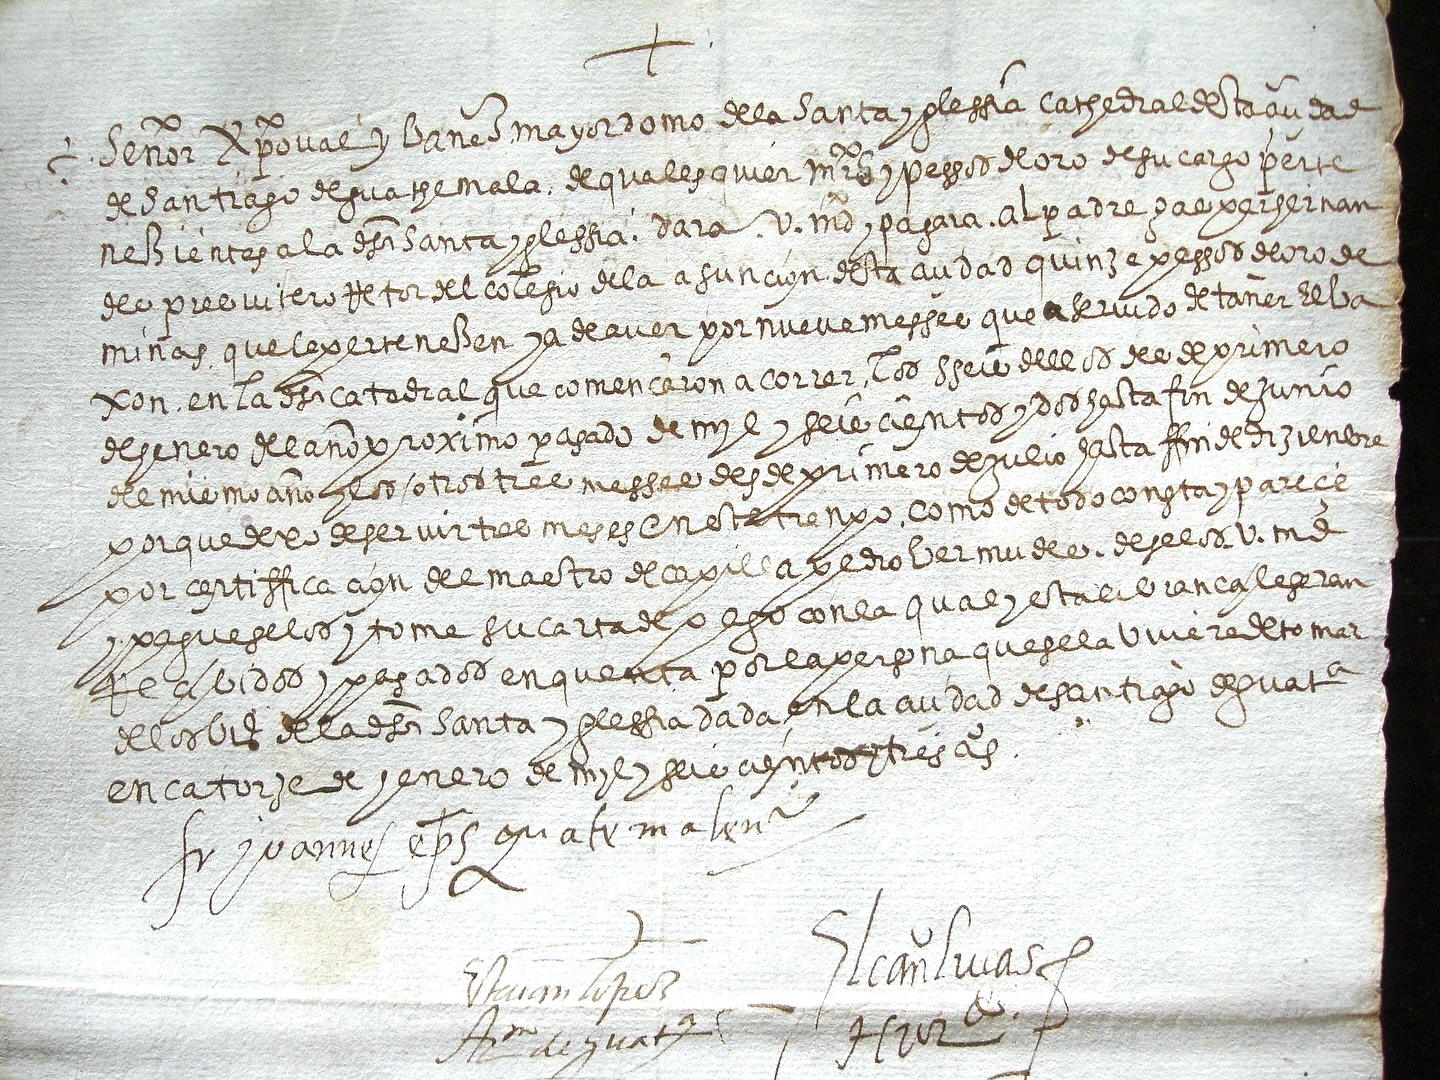 +
Señor Xpoval yvañes mayordomo de la Santa yglessia Cathedral desta ciudad
de Santiago de guathemala. de qualesquier mrs y pessos de oro de su cargo perte
neßientes a la dha Santa yglessia. dara .v. md y pagara. al padre gaspar hernan
des presvitero Retor del colesio de la asuncion desta ciudad quinze pessos de oro de
minas. que le perteneßen y a de aver por nueve messes que a servido de tañer el ba
xon. en la dha catadral que començaron a correr. los sseis dellos des de primero
de henero del año proximo pasado de myl y seis cientos y dos hasta fin de Junio
del mismo año y los otros tres messes desde primero de Julio hasta ffin de dizienbre
porque dexo de servir tres meses en este tienpo. como de todo consta y parece
por certifficacion del maestro de capilla pedro bermudes. deselos. v. md
y pagueselos y tome su carta de pago con la qual y esta libranca le seran
Recibidos y pasados en quenta por la persona que se la uviere de tomar
de los bis de la dha Santa yglessia dada en la ciudad de Santiago de guata
en catorze de henero de myl y seis cientos y tres as.
fr joannes eps guatemalens
Estevan lopez
Arn de guata
El can Lucas
Hror